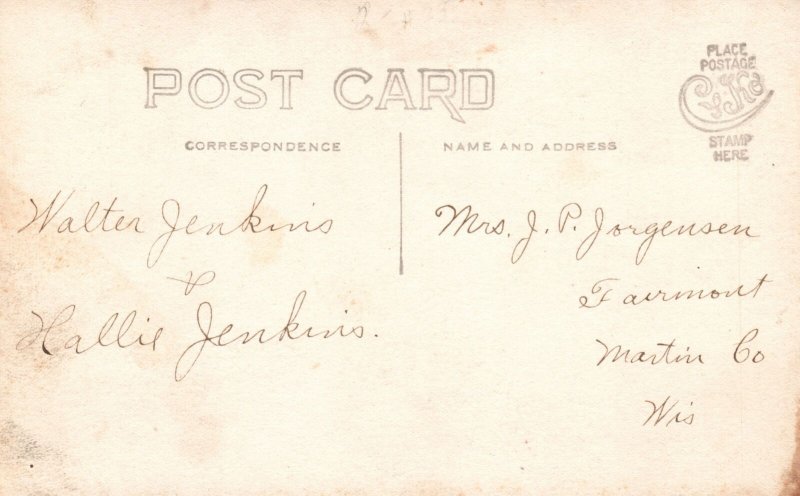 POST CARD
CORRESPONDENCE
NAME AND ADDRESS
PLACE
POSTAGE
STAMP
HERE
Walter Jenkins
&
Hallie Jenkins.
Mrs. J. P. Jorgensen
Fairmont
Martin Co
Wis